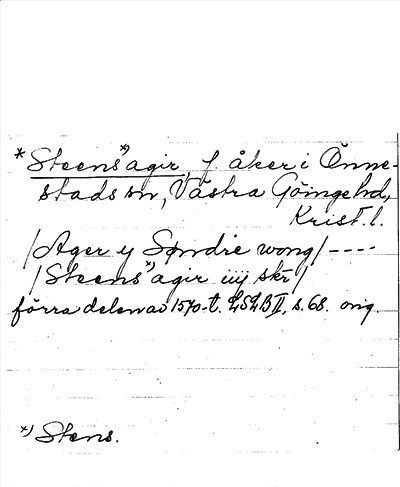 * Steens*)agir, f. åker i Önne-
stads sn, Västra Göinge hd,
Krist. l.
/Ager y Søndre wong/ ----
/Steens*)agir iiij skr/
förra delen av 1570-t. LSLB II, s. 68. orig.
*) Stens.